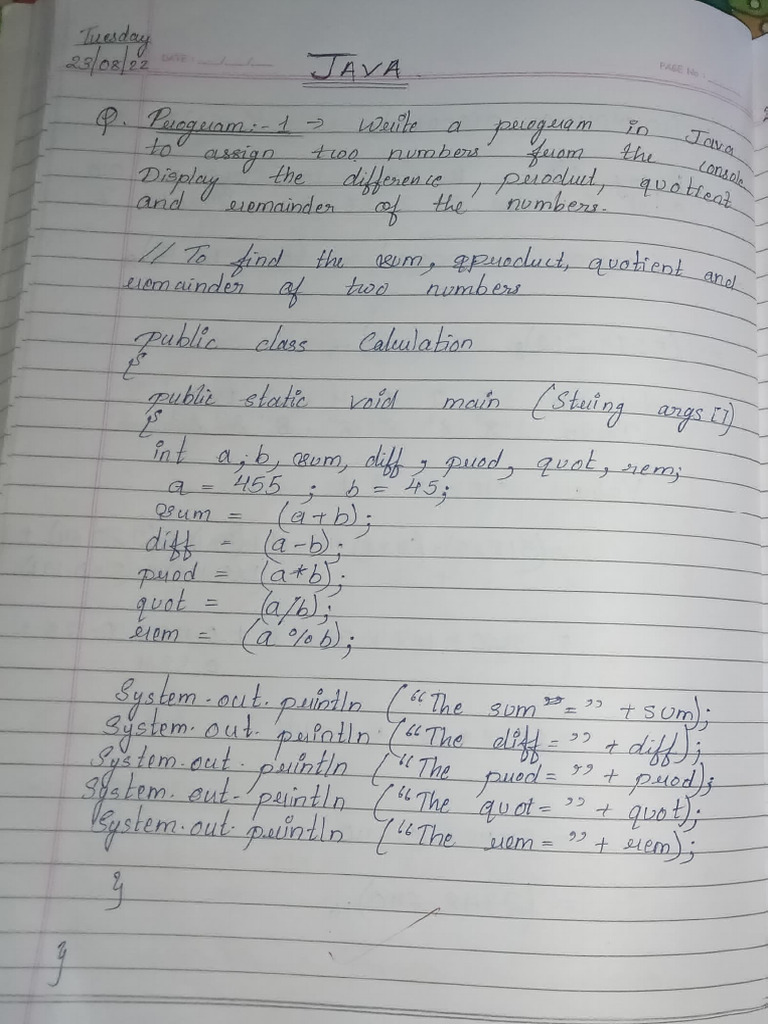 Tuesday
23/08/22
DATE : __/__/__
PAGE No :
JAVA
Q. Program:-1 → Write a program in Java
to assign two numbers from the console
Display the difference, product, quotient
and remainder of the numbers.
// To find the sum, product, quotient and
remainder of two numbers
public class Calculation
{
public static void main (String args[])
{
int a, b, sum, diff, prod, quot, rem;
a = 455 ; b = 45;
sum = (a+b);
diff = (a-b);
prod = (a*b);
quot = (a/b);
rem = (a%b);
System.out.println (“The sum = ” + sum);
System.out.println (“The diff = ” + diff);
System.out.println (“The prod = ” + prod);
System.out.println (“The quot = ” + quot);
System.out.println (“The rem = ” + rem);
}
}